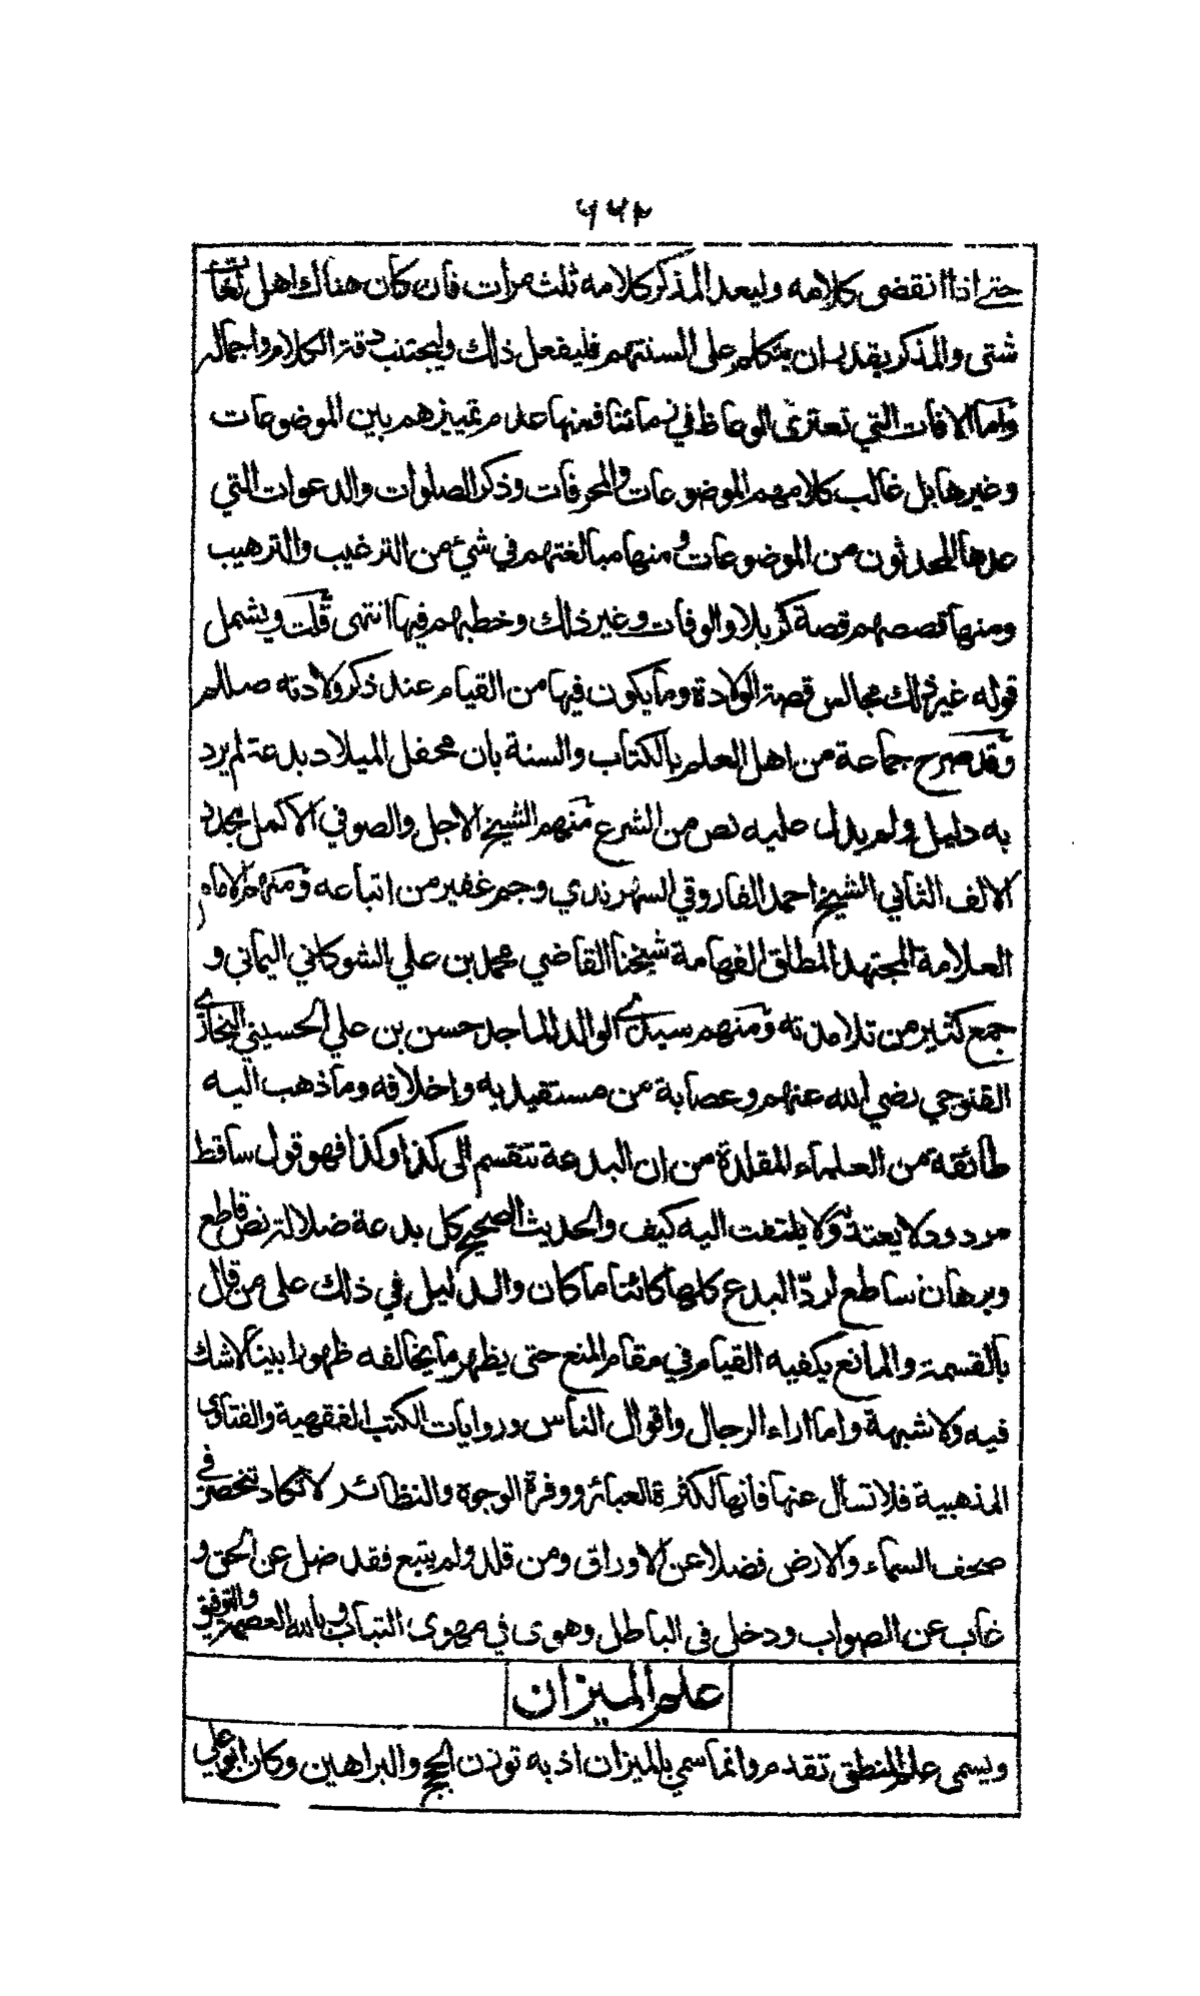 ٦٦٢
حتى اذا انقضى كلامه وليعد المذكر كلامه ثلث مرات فان كان هناك اهل لغات
شتى والمذكر يقدر ان يتكلم على السنتهم فليفعل ذلك وليجتنب دقة الكلام واجماله
واما الافات التي تعترى الوعاظ في زماننا فمنها عدم تمييزهم بين الموضوعات
وغيرها بل غالب كلامهم الموضوعات والمحرفات وذكر الصلوات والدعوات التي
عدها المحدثون من الموضوعات ومنها مبالغتهم في شئ من الترغيب والترهيب
ومنها قصصهم قصة كربلا والوفات وغير ذلك وخطبهم فيها انتهى قلت ويشمل
قوله غير ذلك مجالس قصة الولادة وما يكون فيها من القيام عند ذكر ولادته صللم
وقد صرح جماعة من اهل العلم بالكتاب والسنة بان محفل الميلاد بدعة لم يرد
به دليل ولم يدل عليه نص من الشرع منهم الشيخ الاجل والصوفي الاكمل مجدد
الالف الثاني الشيخ احمد الفاروقي السهرندي وجم غفير من اتباعه ومنهم الامام
العلامة المجتهد المطلق الفهامة شيخنا القاضي محمد بن علي الشوكاني اليماني و
جمع كثير من تلامذته ومنهم سيدي الوالد الماجد حسن بن علي الحسيني البخاري
القنوجي رضي الله عنهم وعصابة من مستفيديه واخلافه وما ذهب اليه
طائفة من العلماء المقلدة من ان البدعة تنقسم الى كذا وكذا فهو قول ساقط
مردود لا يعتد به ولا يلتفت اليه كيف والحديث الصحيح كل بدعة ضلالة نص قاطع
وبرهان ساطع لردّ البدع كلها كائنا ما كان والدليل في ذلك على من قال
بالقسمة والمانع يكفيه القيام في مقام المنع حتى يظهر ما يخالفه ظهورا بينا لا شك
فيه ولا شبهة واما اراء الرجال واقوال الناس وروايات الكتب الفقهية والفتاوى
المذهبية فلا تسأل عنها فانها لكثرة العبائر ووفرة الوجوه والنظائر لا تكاد تنحصر في
صحف السماء والارض فضلا عن الاوراق ومن قلد ولم يتبع فقد ضل عن الحق و
غاب عن الصواب ودخل في الباطل وهوى في مهوى التباب وبالله العصمة والتوفيق
علم الميزان
ويسمى علم المنطق تقدم وانما سمي بالميزان اذ به توزن الحجج والبراهين وكان ابو علي